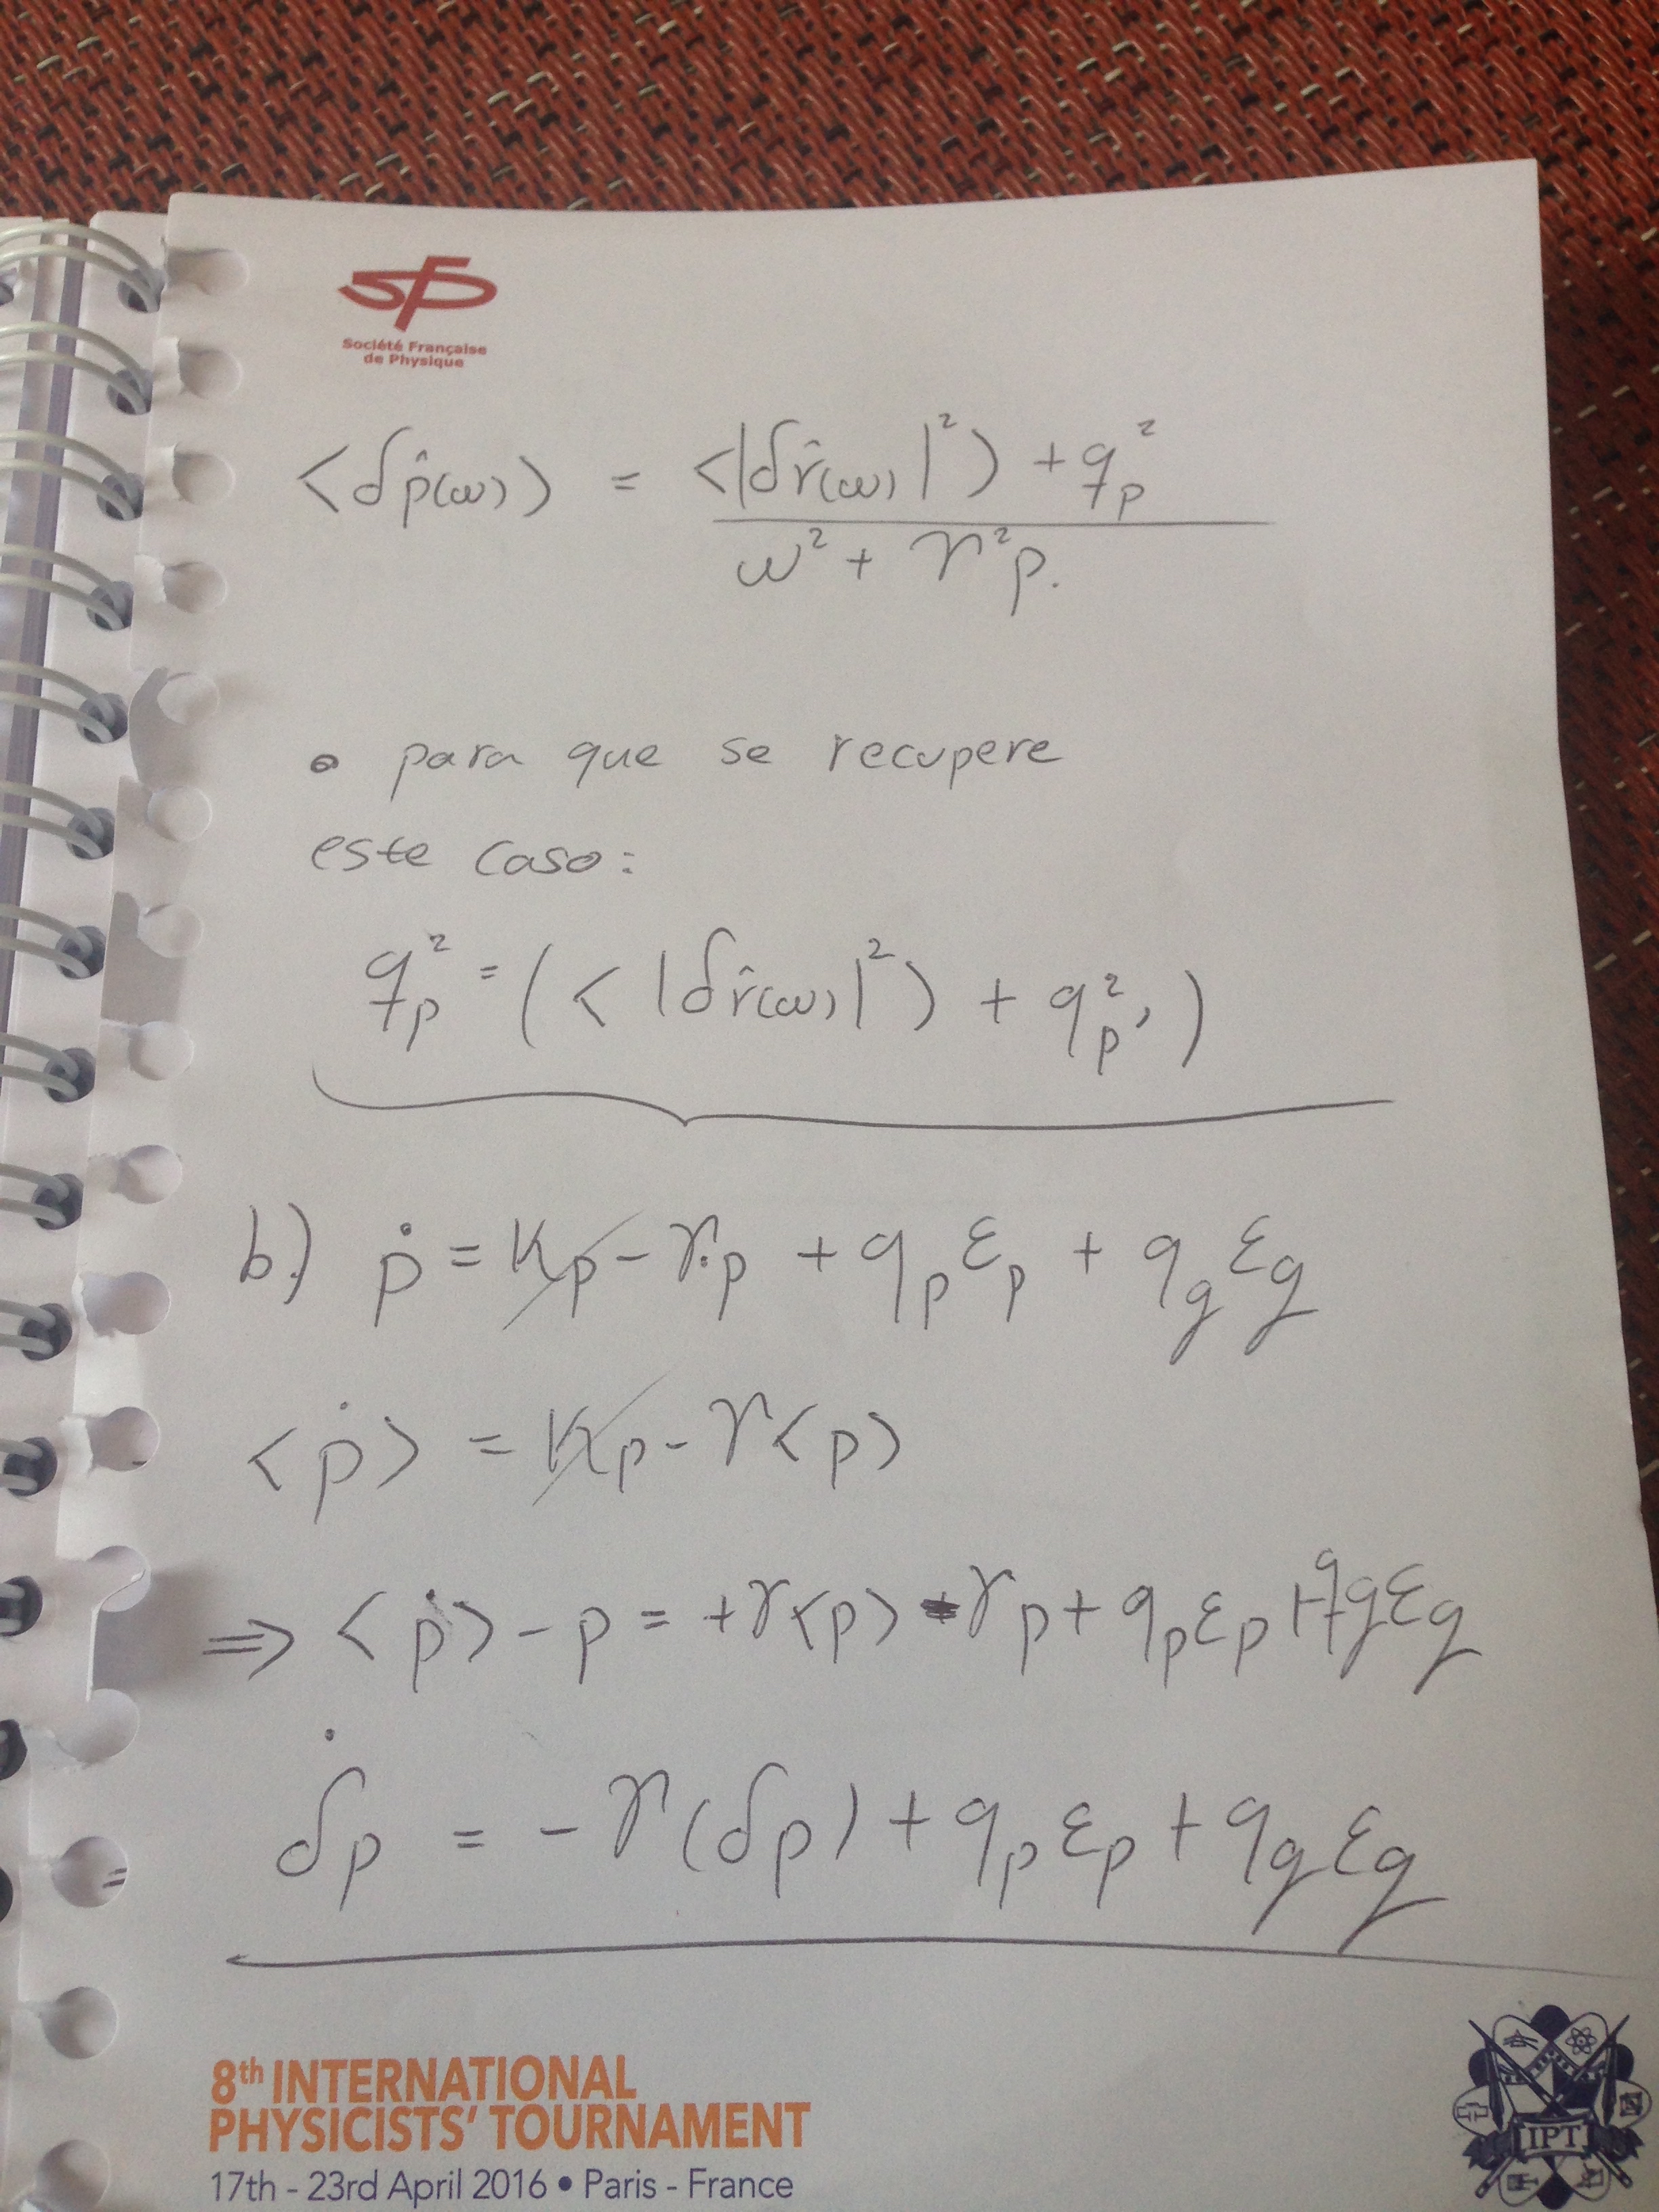 sfp
Société Française
de Physique
<δp̂(ω)> = <|δr̂(ω)|²> + q_p²
ω² + γ²p.
• para que se recupere
este caso:
q_p² = (<|δr̂(ω)|²> + q_p²')
b.) ṗ = Kp - γ.p + q_p ε_p + q_g ε_g
<ṗ> = Kp - γ<p>
⇒ <ṗ> - p = +γ<p> - γp + q_p ε_p + q_g ε_g
δ̇p = -γ(δp) + q_p ε_p + q_g ε_g
=
8th INTERNATIONAL
PHYSICISTS' TOURNAMENT
17th - 23rd April 2016 • Paris - France
IPT